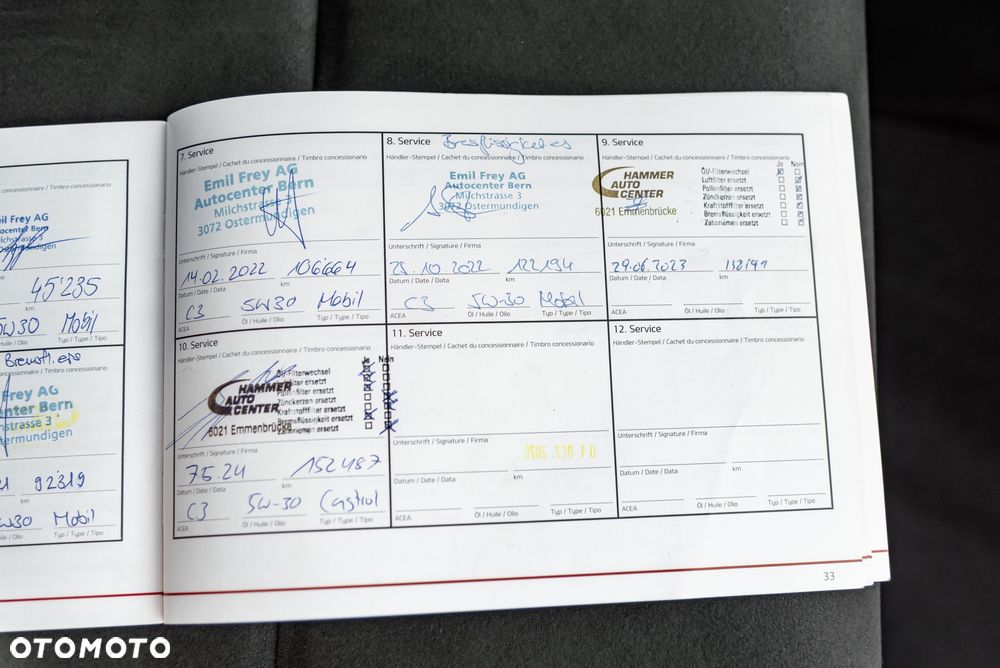 il Frey AG
45'235
km
5W30 Mobil
Typ / Type / Tipo
Frey AG
center Bern
92819
km
Mobil
Typ / Type / Tipo
7. Service
Händler-Stempel / Cachet du concessionnaire / Timbro concessionario
Emil Frey AG
Autocenter Bern
Milchstrasse 3
3072 Ostermundigen
Unterschrift / Signature / Firma
14.02.2022 106'664
Datum / Date / Data km
C3 5W30 Mobil
ACEA Öl / Huile / Olio Typ / Type / Tipo
8. Service
Händler-Stempel / Cachet du concessionnaire / Timbro concessionario
Emil Frey AG
Autocenter Bern
Milchstrasse 3
3072 Ostermundigen
Unterschrift / Signature / Firma
25.10.2022 122194
Datum / Date / Data km
C3 5W-30 Mobil
ACEA Öl / Huile / Olio Typ / Type / Tipo
9. Service
Händler-Stempel / Cachet du concessionnaire / Timbro concessionario
Ja Nein
HAMMER
AUTO
CENTER
6021 Emmenbrücke
Öl/-Filterwechsel
Luftfilter ersetzt
Pollenfilter ersetzt
Zündkerzen ersetzt
Kraftstofffilter ersetzt
Bremsflüssigkeit ersetzt
Zahnriemen ersetzt
Unterschrift / Signature / Firma
29.06.2023
Datum / Date / Data km
ACEA Öl / Huile / Olio Typ / Type / Tipo
10. Service
Händler-Stempel / Cachet du concessionnaire / Timbro concessionario
Ja Nein
HAMMER
AUTO
CENTER
6021 Emmenbrücke
Öl/-Filterwechsel
Luftfilter ersetzt
Pollenfilter ersetzt
Zündkerzen ersetzt
Kraftstofffilter ersetzt
Bremsflüssigkeit ersetzt
Zahnriemen ersetzt
Unterschrift / Signature / Firma
7.5.24 152487
Datum / Date / Data km
C3 5W-30 Castrol
ACEA Öl / Huile / Olio Typ / Type / Tipo
11. Service
Händler-Stempel / Cachet du concessionnaire / Timbro concessionario
Unterschrift / Signature / Firma
Datum / Date / Data km
ACEA Öl / Huile / Olio Typ / Type / Tipo
12. Service
Händler-Stempel / Cachet du concessionnaire / Timbro concessionario
Unterschrift / Signature / Firma
Datum / Date / Data km
ACEA Öl / Huile / Olio Typ / Type / Tipo
33
OTOMOTO